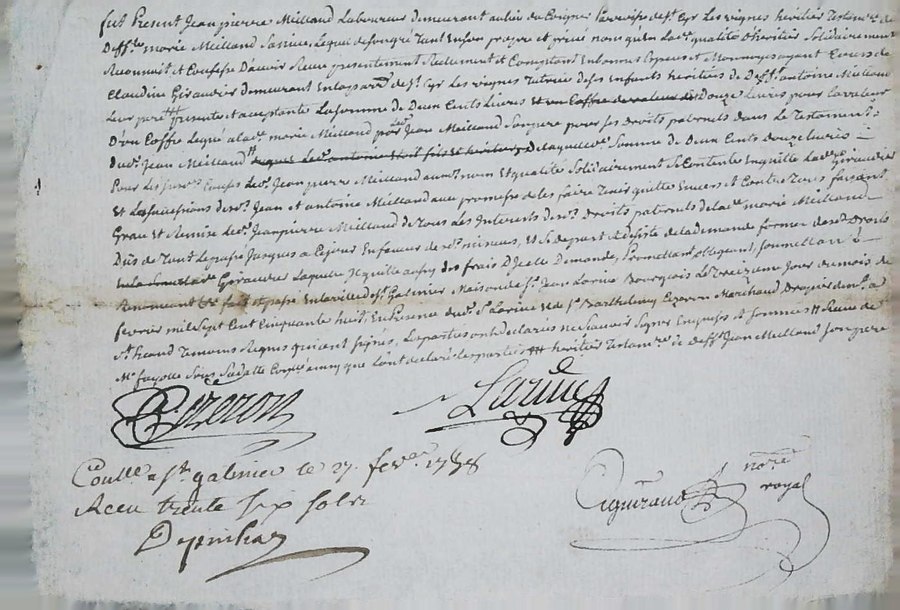 fut Present Jean pierre Meilland Laboureur demeurant au lieu du Coignet Parroisse de St Cyr Les vignes héritier Testamre de
Deffte morie Meilland Sa niece Lequel de son gré tant en son propre et privé nom qu'en Lade qualité d'héritier Solidairement
Reconnoit et Confesse D'avoir Receu presentement Reellement et Comptant En bonnes Especes et Monnoyes ayant Cours de
Claudine Giraudier demeurant En la parre de St Cyr Les vignes Tutrice de ses Enfants héritiers de Defft antoine Meilland
Leur pere presente et acceptante La somme de Deux Cents Livres Et un Coffre de valeur de Douze Livres pour la valeur
D'un Coffre Legué a lade morie Meilland par Jean Meilland Son pere pour ses Droits paternels dans Le Testament
dud. Jean Meilland De laquelle Somme de Deux Cents douze Livres
Pour Les Led. Jean pierre Meilland aud. nom Et qualité Solidairement Se Contente En quitte Lade Giraudier
Et La successions desd. Jean et antoine Meilland avec promesse de les faire Tenir quitte Envers et Contre Tous faisant
Grace et Remise Led. Jean pierre Meilland de Tous Les Interests desd. Droits paternels de lade morie Meilland
Dûs de Tout Le passé Jusques a Cejour En faveur desd. mineurs, et Se depart et desiste de la demande formée desd. Droits
Giraudier Laquelle Il quitte aussy des frais D'Icelle Demande, Promettant obligeant, soumettant &
Renonceant &c fait et passé En la ville de St Galmier Maison de Sr Jean Larive Bourgeois Le treizieme Jour du mois de
fevrier mil Sept Cent Cinquante huit, En presence dud. Sr Larive Et de Sr Barthelemy Cezeron Marchand Drapier demt a
St heand Temoins Requis qui ont signés, Les parties ont declarés ne Scavoir Signer Enquises et Sommées
Me fayolle Sous Sadatte ainsy que L'ont declaré Les parties héritier Testamre de Defft Jean Meilland Son pere
Cezeron
Larive
Conlle a St galmier le 27. fevr. 1758
Receu trente six sols
Depinhac
nore
royal